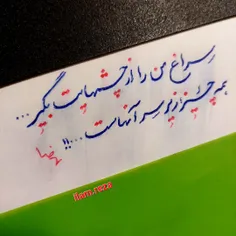 سراغ من را از چشمهایت بگیر...
همه چیز زیر سر آنهاست...!!
ilam.reza